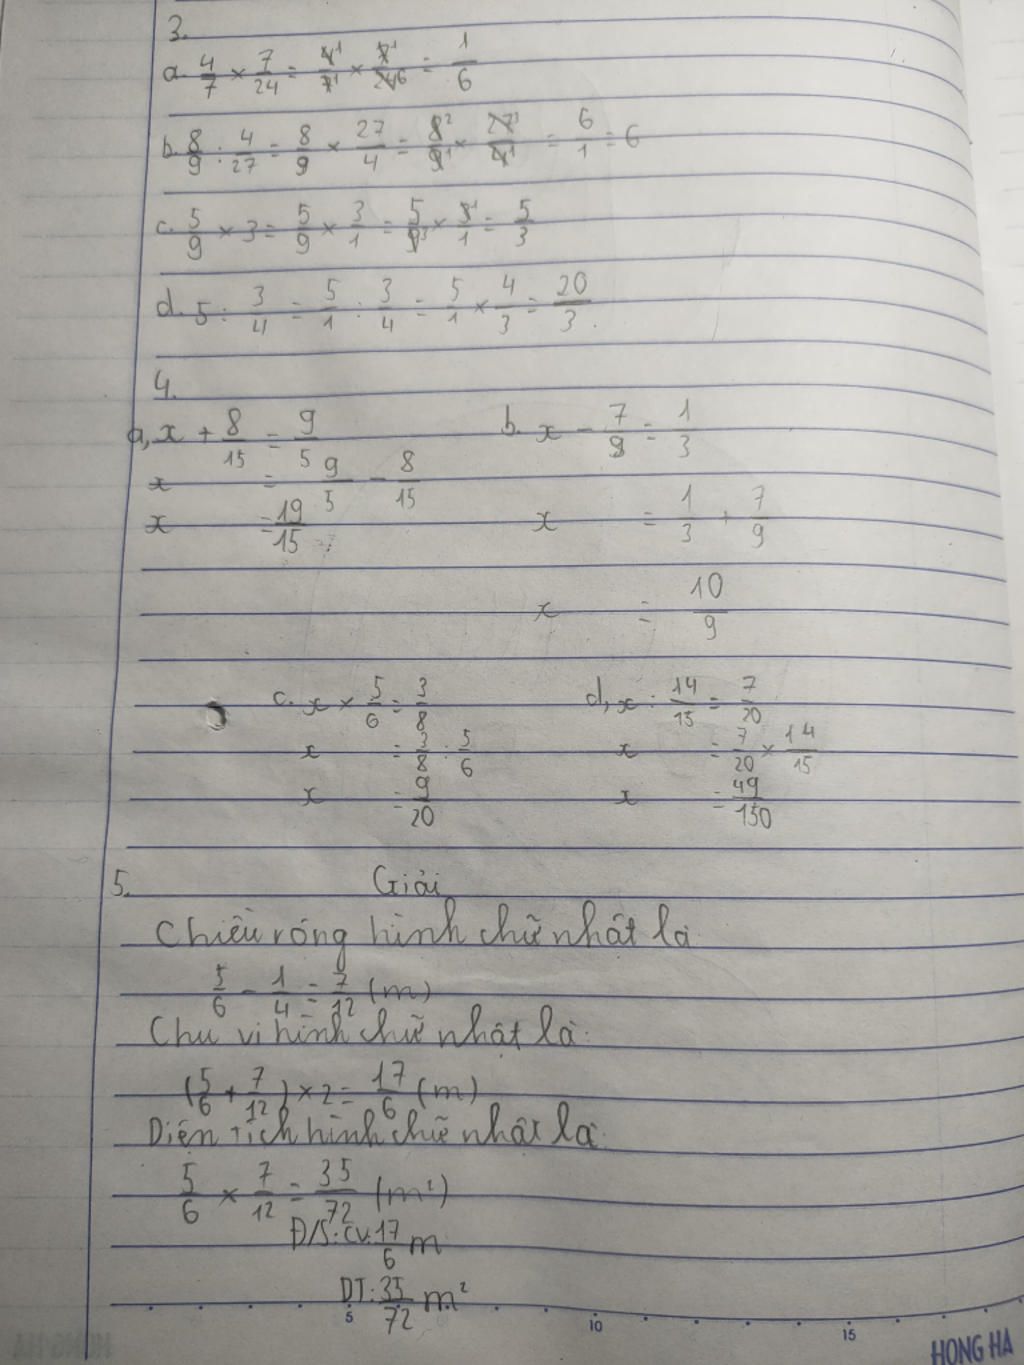 3.
a. 4/7 × 7/24 = 4¹/7¹ × 7¹/24⁶ = 1/6
b. 8/9 : 4/27 = 8/9 × 27/4 = 8²/9¹ × 27³/4¹ = 6/1 = 6
c. 5/9 × 3 = 5/9 × 3/1 = 5/9³ × 3¹/1 = 5/3
d. 5 : 3/4 = 5/1 : 3/4 = 5/1 × 4/3 = 20/3.
4.
a, x + 8/15 = 9/5
x = 9/5 - 8/15
x = 19/15
b. x - 7/9 = 1/3
x = 1/3 + 7/9
x = 10/9
c. x × 5/6 = 3/8
x = 3/8 : 5/6
x = 9/20
d, x : 14/15 = 7/20
x = 7/20 × 14/15
x = 49/150
5. Giải
Chiều rộng hình chữ nhật là
5/6 - 1/4 = 7/12 (m)
Chu vi hình chữ nhật là:
(5/6 + 7/12) × 2 = 17/6 (m)
Diện tích hình chữ nhật là:
5/6 × 7/12 = 35/72 (m²)
Đ/S: CV: 17/6 m
DT: 35/72 m²
5 10 15
HONG HA